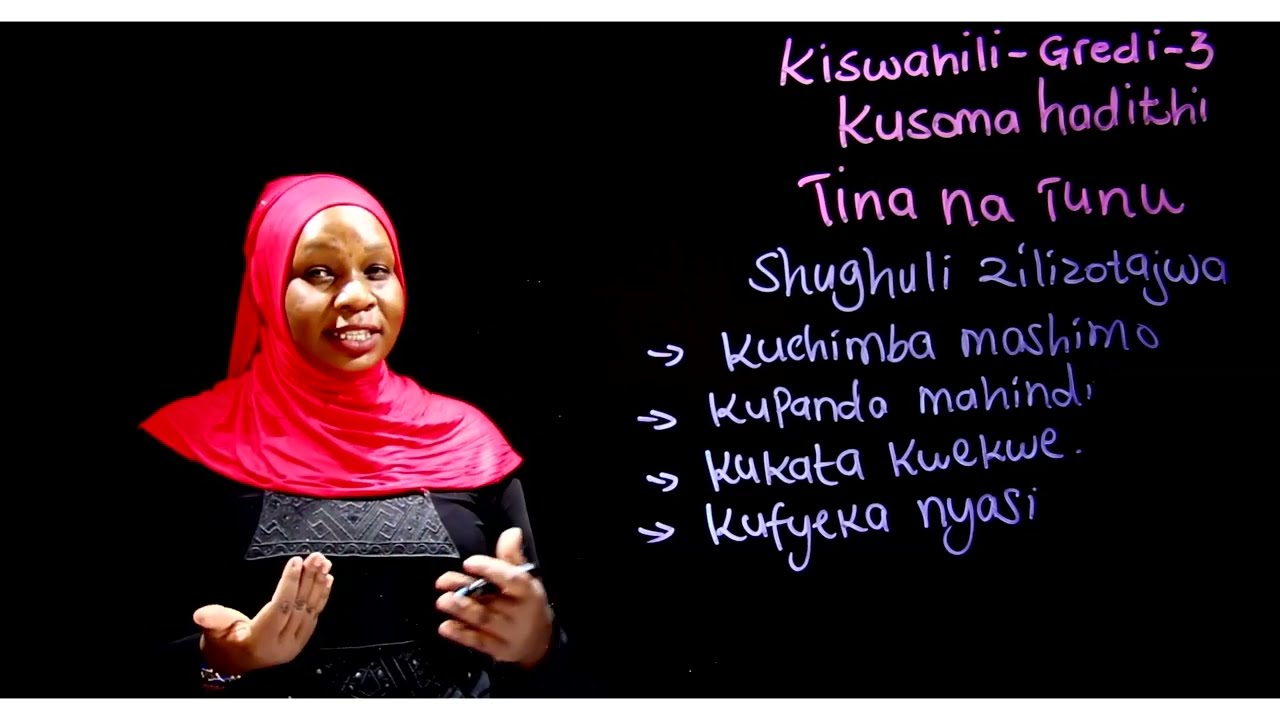 Kiswahili-Gredi-3
Kusoma hadithi
Tina na Tunu
Shughuli zilizotajwa
→ Kuchimba mashimo
→ Kupanda mahindi
→ Kukata Kwekwe.
→ Kufyeka nyasi